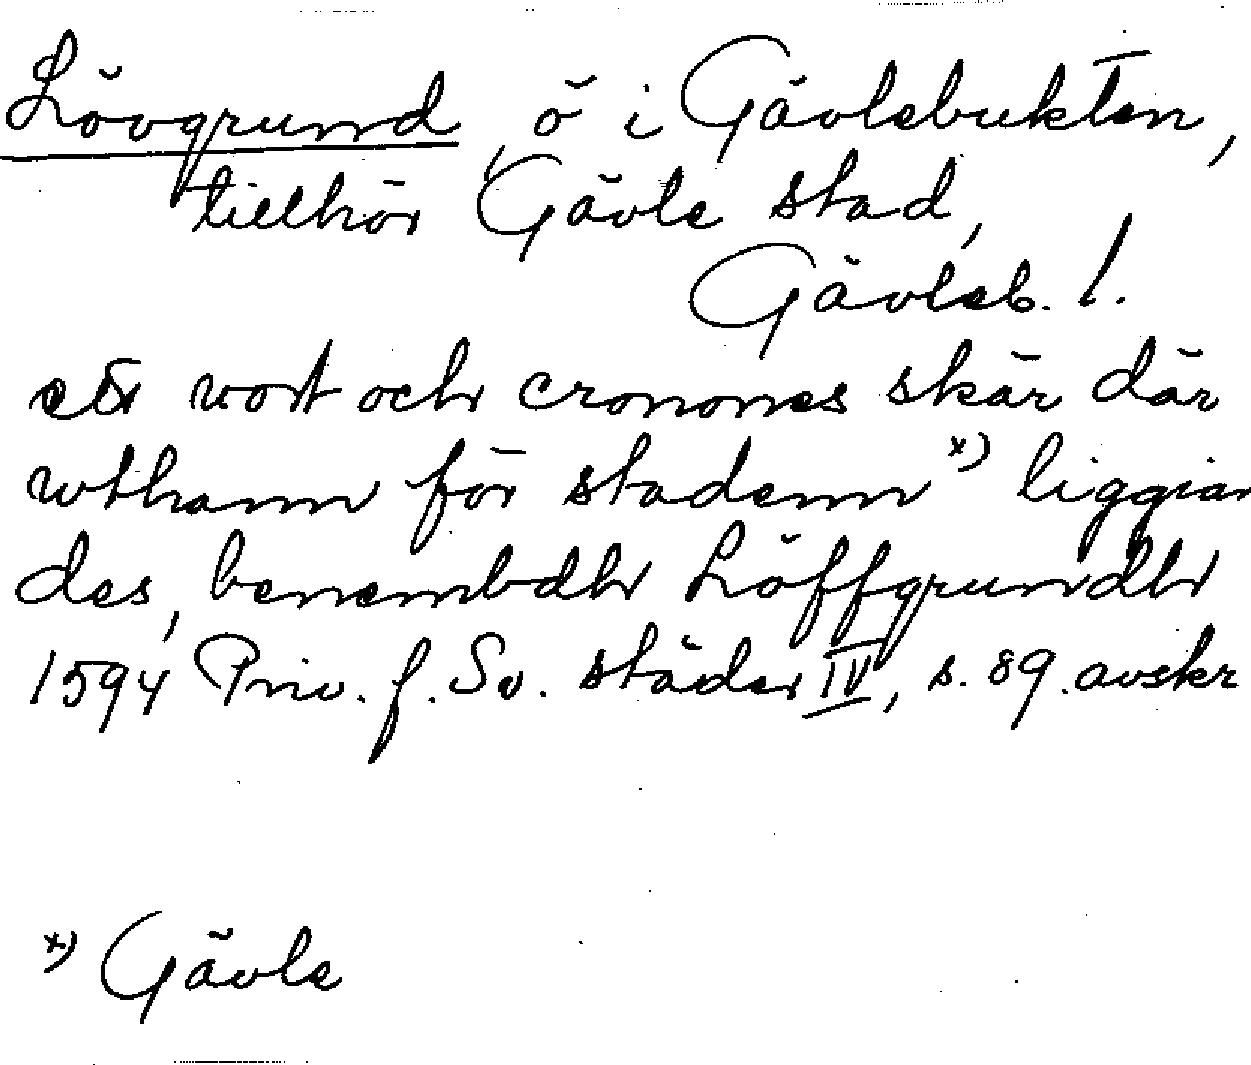 Lövgrund, ö i Gävlebukten,
tillhör Gävle stad,
Gävleb. l.
ett wort och cronones skär där
wthann för stadenn x) liggian
des, benembdh Löffgrundh
1594 Priv. f. Sv. städer IV, s. 89. avskr
x) Gävle